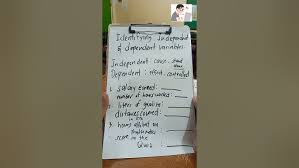 Identifying Independent
& dependent variables
Independent : cause, stand alone
Dependent : effect, controlled
1. salary earned : ______
number of hours worked : ______
2. liters of gasoline : ______
distance covered : ______
3. hours allotted in
score in the
Quiz : ______